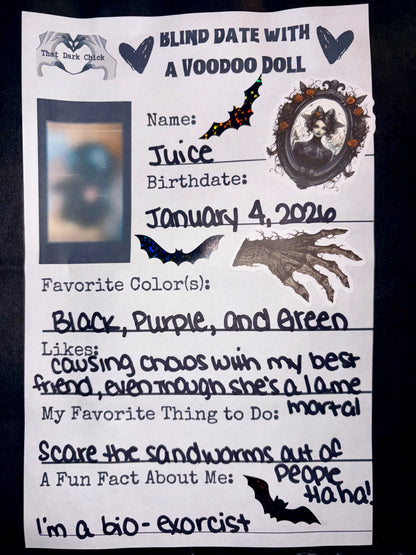 That Dark Chick
BLIND DATE WITH
A VOODOO DOLL
Name:
Juice
Birthdate:
January 4, 2026
Favorite Color(s):
Black, Purple, and Green
Likes:
causing chaos with my best
friend, even though she's a lame
mortal
My Favorite Thing to Do:
Scare the sandworms out of
people
Haha!
A Fun Fact About Me:
I'm a bio-exorcist